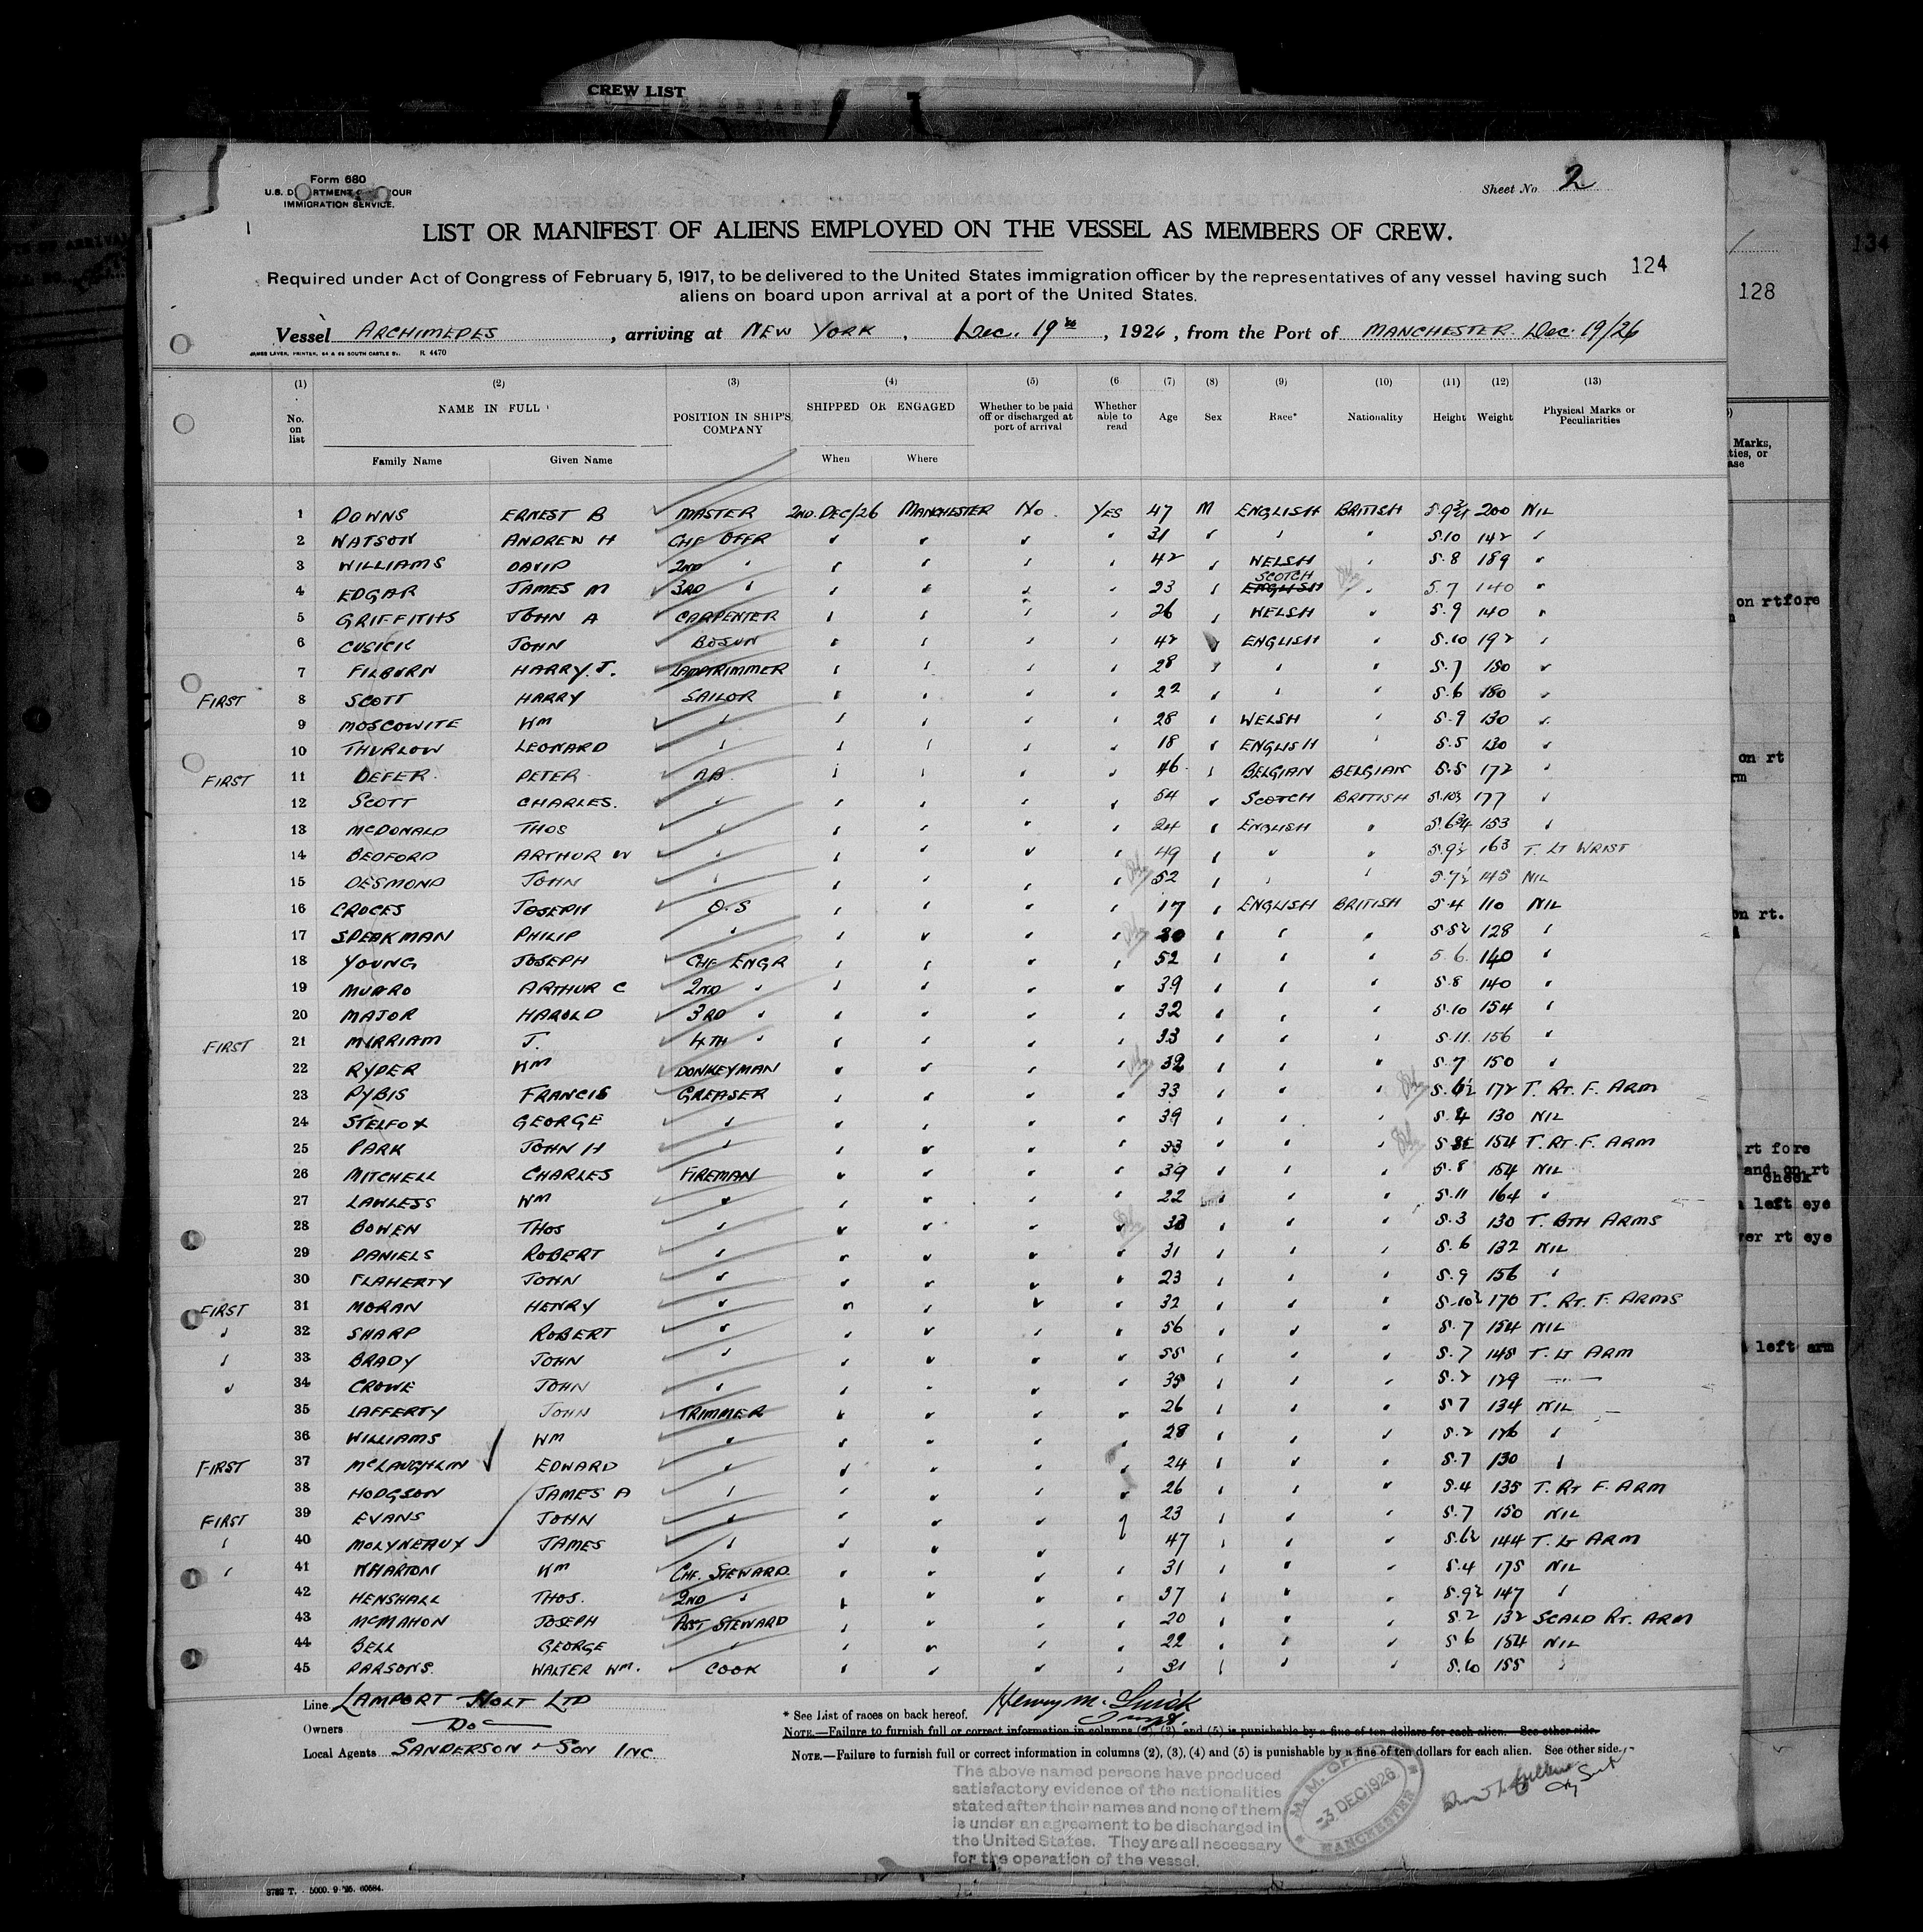 CREW LIST
Form 680
U.S. D RTMENT OUR
IMMIGRATION SERVICE.
Sheet No 2
LIST OR MANIFEST OF ALIENS EMPLOYED ON THE VESSEL AS MEMBERS OF CREW.
124
Required under Act of Congress of February 5, 1917, to be delivered to the United States immigration officer by the representatives of any vessel having such
aliens on board upon arrival at a port of the United States.
Vessel ARCHIMEDES, arriving at NEW YORK, Dec. 19th, 1926, from the Port of MANCHESTER Dec. 19/26
JAMES LAVER, PRINTER, 64 & 66 SOUTH CASTLE ST. R 4470
(1) (2) (3) (4) (5) (6 (7) (8) (9) (10) (11) (12) (13)
No. on list NAME IN FULL POSITION IN SHIP'S COMPANY SHIPPED OR ENGAGED Whether to be paid off or discharged at port of arrival Whether able to read Age Sex Race* Nationality Height Weight Physical Marks or Peculiarities
Family Name Given Name When Where
1 DOWNS ERNEST B MASTER 2ND. DEC/26 MANCHESTER No YES 47 M ENGLISH BRITISH 5.9¾ 200 NIL
2 WATSON ANDREW H CHF OFFR 31 5.10 142
3 WILLIAMS DAVID 2ND " 42 WELSH 5.8 189
4 EDGAR JAMES M 3RD " 23 ENGLISH SCOTCH 5.7 140
5 GRIFFITHS JOHN A CARPENTER 26 WELSH 5.9 140
6 CUSICK JOHN BOSUN 42 ENGLISH 5.10 192
7 FILBURN HARRY. J. LAMPTRIMMER 28 5.7 150
FIRST 8 SCOTT HARRY SAILOR 22 5.6 180
9 MOSCOWITE WM 28 WELSH 5.9 130
10 THURLOW LEONARD 18 ENGLISH 5.5 130
FIRST 11 DEFER PETER AB 46 BELGIAN BELGIAN 5.5 172
12 SCOTT CHARLES. 54 SCOTCH BRITISH 5.10½ 177
13 McDONALD THOS 24 ENGLISH 5.6¾ 153
14 BEDFORD ARTHUR W 49 5.9½ 163 T. LT WRIST
15 DESMOND JOHN 52 5.7½ 145 NIL
16 CROCES JOSEPH O.S 17 ENGLISH BRITISH 5.4 110 NIL
17 SPEAKMAN PHILIP 20 5.5½ 128
18 YOUNG JOSEPH CHF ENGR 52 5.6 140
19 MUNRO ARTHUR C 2ND " 39 5.8 140
20 MAJOR HAROLD 3RD " 32 5.10 154
FIRST 21 MIRRIAM J. 4TH " 33 5.11 156
22 RYDER WM DONKEYMAN 32 5.7 150
23 PYBIS FRANCIS GREASER 33 5.6½ 172 T. RT. F. ARM
24 STELFOX GEORGE 39 5.4 130 NIL
25 PARK JOHN H 33 154 T. RT. F. ARM
26 MITCHELL CHARLES FIREMAN 39 5.8 154 NIL
27 LAWLESS WM 22 5.11 164
28 BOWEN THOS 33 5.3 130 T. BTH ARMS
29 DANIELS ROBERT 31 5.6 132 NIL
30 FLAHERTY JOHN 23 5.9 156
FIRST 31 MORAN HENRY 32 5.10½ 170 T. RT. F. ARMS
32 SHARP ROBERT 56 5.7 154 NIL
33 BRADY JOHN 55 5.7 148 T. LT ARM
34 CROWE JOHN 35 5.2 129
35 LAFFERTY JOHN TRIMMER 26 5 7 134 NIL
36 WILLIAMS WM 28 5.2 126
FIRST 37 McLAUGHLIN EDWARD 24 5.7 130
38 HODGSON JAMES A 26 5.4 135 T. RT F. ARM
FIRST 39 EVANS JOHN 23 5.7 150 NIL
40 MOLYNEAUX JAMES 47 5.6½ 144 T. LT ARM
41 WHARTON WM CHF. STEWARD. 31 5.4 175 NIL
42 HENSHALL THOS. 2ND " 37 5.9½ 147
43 McMAHON JOSEPH ASST STEWARD 20 5.2 132 SCALD RT. ARM
44 BELL GEORGE 22 5 6 154 NIL
45 PARSONS. WALTER WM. COOK 31 5.10 155
Line LAMPORT HOLT LTD
Owners Do
Local Agents SANDERSON & SON INC
* See List of races on back hereof.
NOTE.—Failure to furnish full or correct information in columns (2), (3), and (5) is punishable by a fine of ten dollars for each alien. See other side.
NOTE.—Failure to furnish full or correct information in columns (2), (3), (4) and (5) is punishable by a fine of ten dollars for each alien. See other side.
The above named persons have produced
satisfactory evidence of the nationalities
stated after their names and none of them
is under an agreement to be discharged in
the United States. They are all necessary
for the operation of the vessel.
3 DEC 1926
MANCHESTER
8782 T. 5000. 9 '25. 60584.
128
Marks,
ties, or
ase
on rtfore
on rt
rm
on rt.
rt fore
and on rt
cheek
left eye
ver rt eye
left arm
134